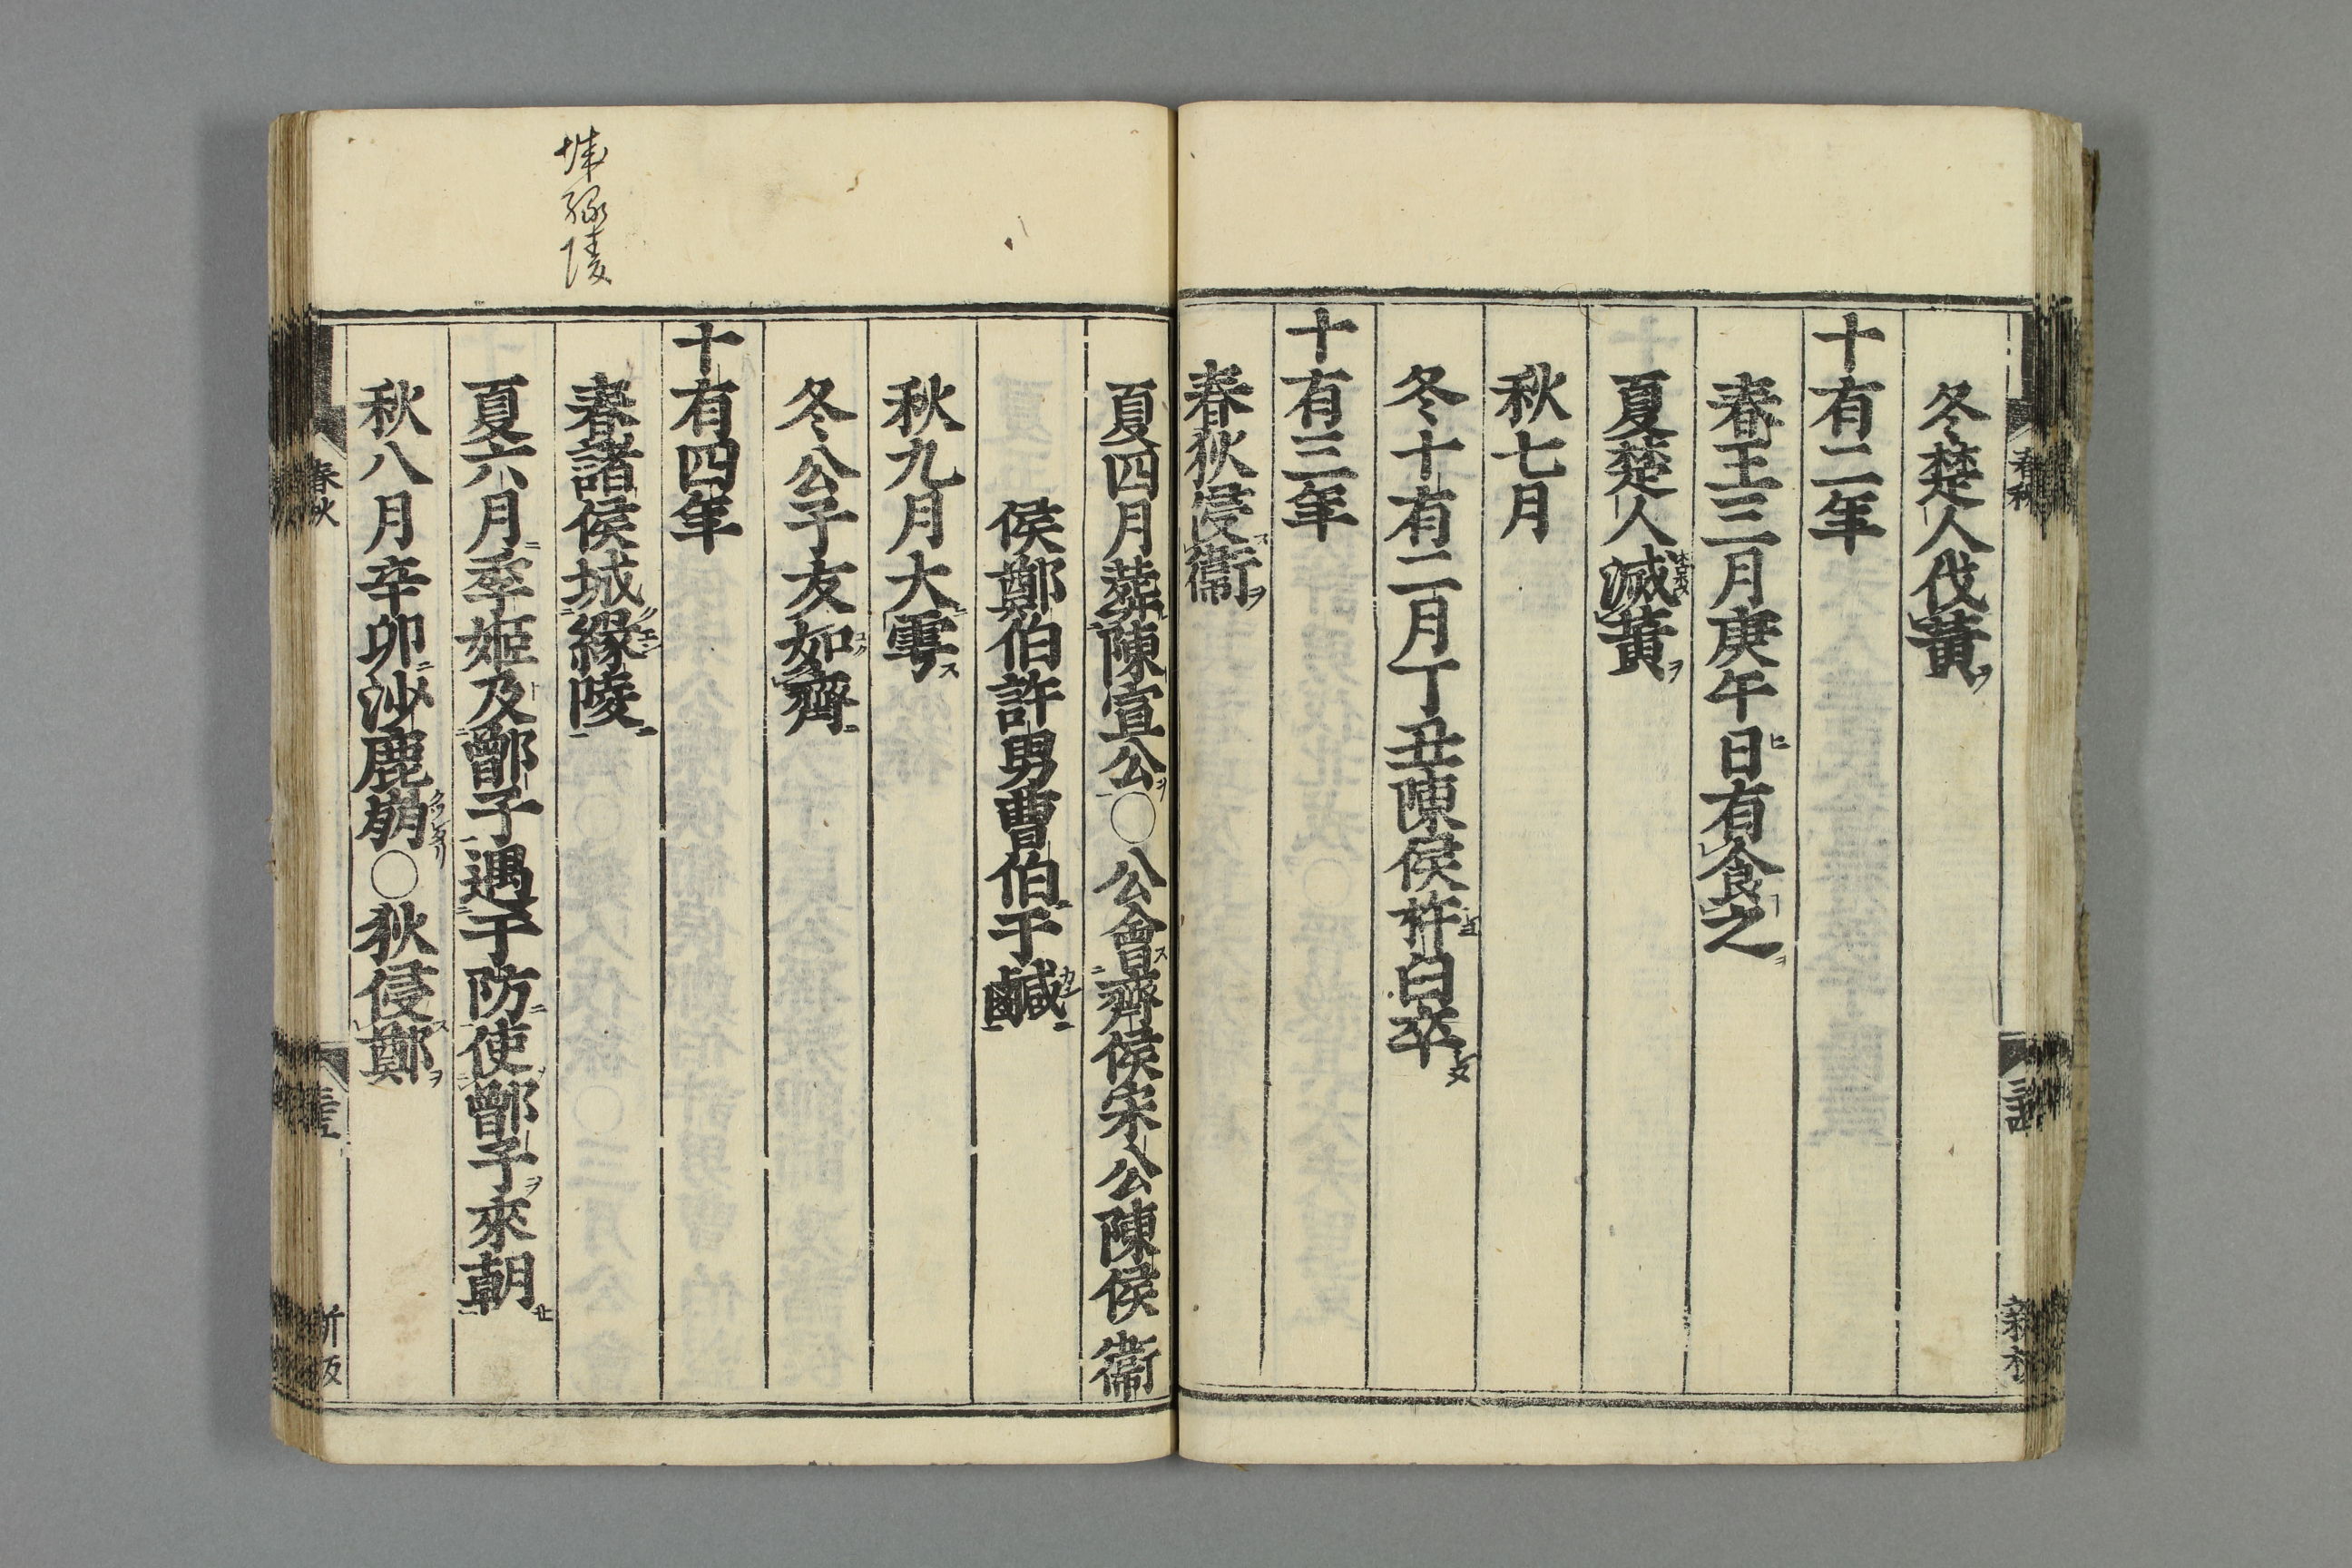 冬楚人伐黃
十有二年
春王三月庚午日有食之
夏楚人滅黃
秋七月
冬十有二月丁丑陳侯杵臼卒
十有三年
春狄侵衞
夏四月葬陳宣公〇公會齊侯宋公陳侯衞
侯鄭伯許男曹伯于鹹
秋九月大雩
冬公子友如齊
十有四年
春諸侯城緣陵
夏六月季姬及鄫子遇于防使鄫子來朝
秋八月辛卯沙鹿崩〇狄侵鄭
城緣陵
春秋